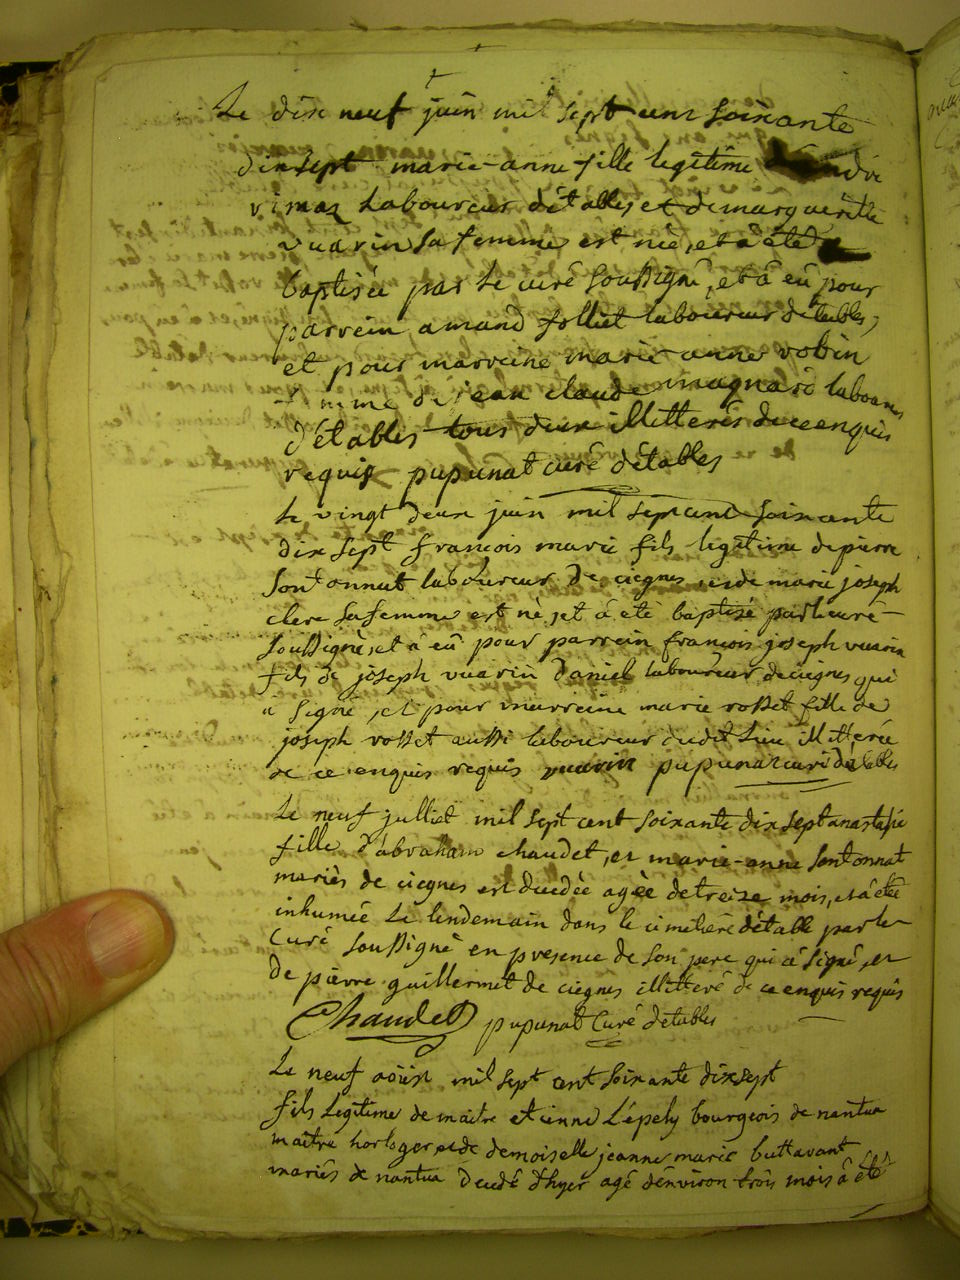 Le dix neuf juin mil sept cent soixante
dix sept marie-anne fille legitime
vimaz Laboureur détables et de margueritte
vuarin sa femme est née, et à été
baptisée par le curé soussigné, et à eû pour
parrein amand folliet laboureur détables,
et pour marreine marie anne robin
femme de jean claude magnard laboureur
détables tous deux illitterés de ce enquis
requis pupunat curé détables
Le vingt deux juin mil sept cent soixante
dix sept francois marie fils legitime de pierre
sontonnat laboureur de ciegnes, et de marie joseph
clerc sa femme est né, et à eté baptisé par le curé
soussigné, et à eû pour parrein francois joseph vuarin
fils de joseph vuarin daniel laboureur de ciegnes qui
à signé, et pour marreine marie rosset fille de
joseph rosset aussi laboureur dudit lieu illitterée
de ce enquis requis vuarin pupunat curé détables
Le neuf julliet mil sept cent soixante dix sept anastasie
fille d'abraham chaudet, et marie-anne sontonnat
mariés de ciegnes est decedée agée de treize mois, et à été
inhumée le lendemain dans le cimetiére détable par le
curé soussigné en presence de son pere qui à signé, et
de pierre guillermet de ciegnes illitteré de ce enquis requis
Chaudet pupunat Curé détables
Le neuf aoust mil sept cent soixante dix sept
fils legitime de maitre etienne Lépely bourgeois de nantua
maitre horloger et de demoiselle jeanne marie buttavant
mariés de nantua decedé d'hyer agé d'environ trois mois à été